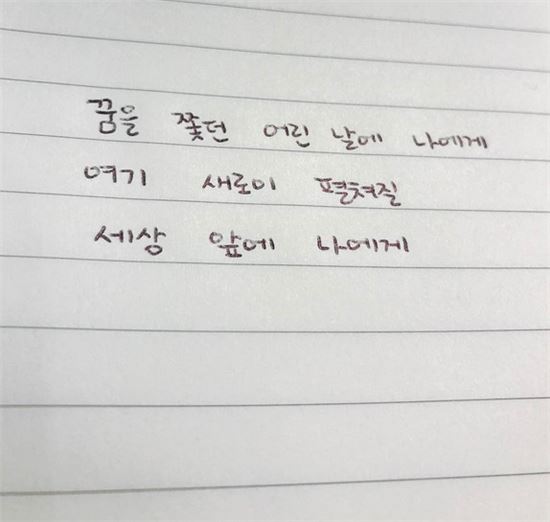 꿈을 쫓던 어린 날에 나에게
여기 새로이 펼쳐질
세상 앞에 나에게